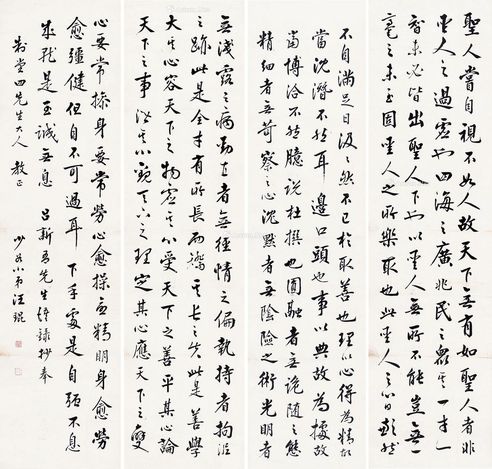 聖人嘗自視不如人故天下無有如聖人者非
聖人之過虛也四海之廣兆民之眾其一才一
智未必皆出聖人下也以聖人無所不能豈無一
毫之未至固聖人之所樂取也此聖人之心日
不自滿足日汲汲然不已於取善也理以心得為精故
當沈潛不然耳邊口頭也事以典故為據故
當博洽不然臆說杜撰也圓融者無詭隨之態
精細者無苛察之心沈默者無陰險之術光明者
無淺露之病勁直者無徑情之偏執持者拘泥
之跡此是全才有所長而矯其長之失此是善學
大其心容天下之物虛其心受天下之善平其心論
天下之事潛其心觀天下之理定其心應天下之變
心要常操身要常勞心愈操愈精明身愈勞
愈彊健但自不可過耳 下手處是自強不息
成就是至誠無息 呂新吾先生語錄抄奉
四先生大人 教正
汪琨